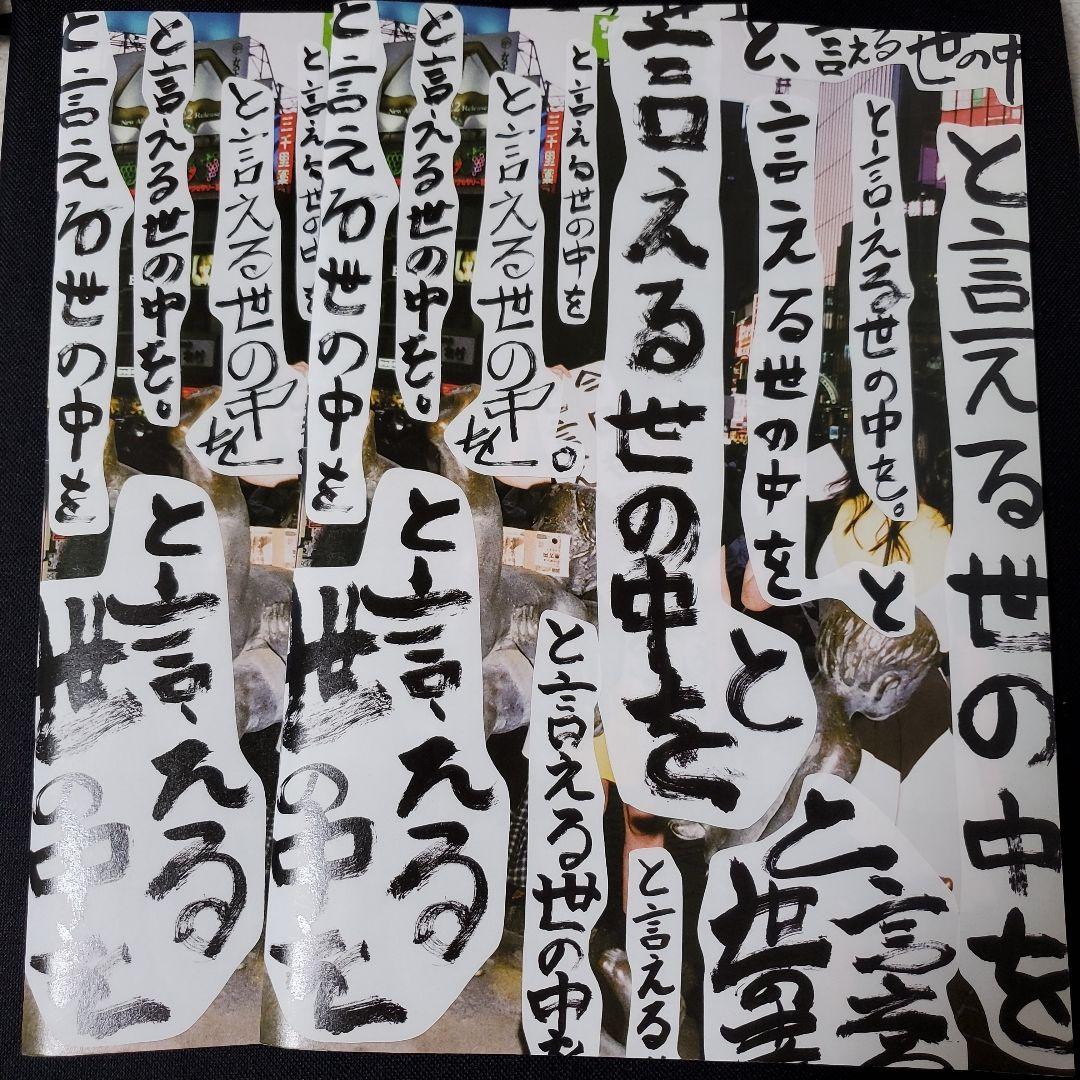 と言える世の中を
と言える世の中を。
と言える世の中を
と言える世の中を
と言える
世の中を
と言える世の中を
と言える世の中を。
と言える世の中を
と言える世の中を
と言える
世の中を
三千里薬
三千里薬
2 Release
2 Release
言える世の中を
と言える世の中
と、
言える世の中を
と
と
と言える世の中を。
と言える世の中を
と言える世の中を
と言える
と言える
世の